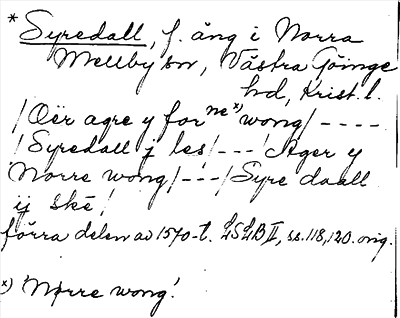 * Syredall, f. äng i Norra
Mellby sn, Västra Göinge
hd, Krist. l.
/Oër agre y for ne x) wong/ ----
/Syredall j les/---/Ager y
Norre wong/---/Syre daall
ij skē/
förra delen av 1570-t. LSLB II, ss. 118, 120. orig.
x) 'Nørre wong'.